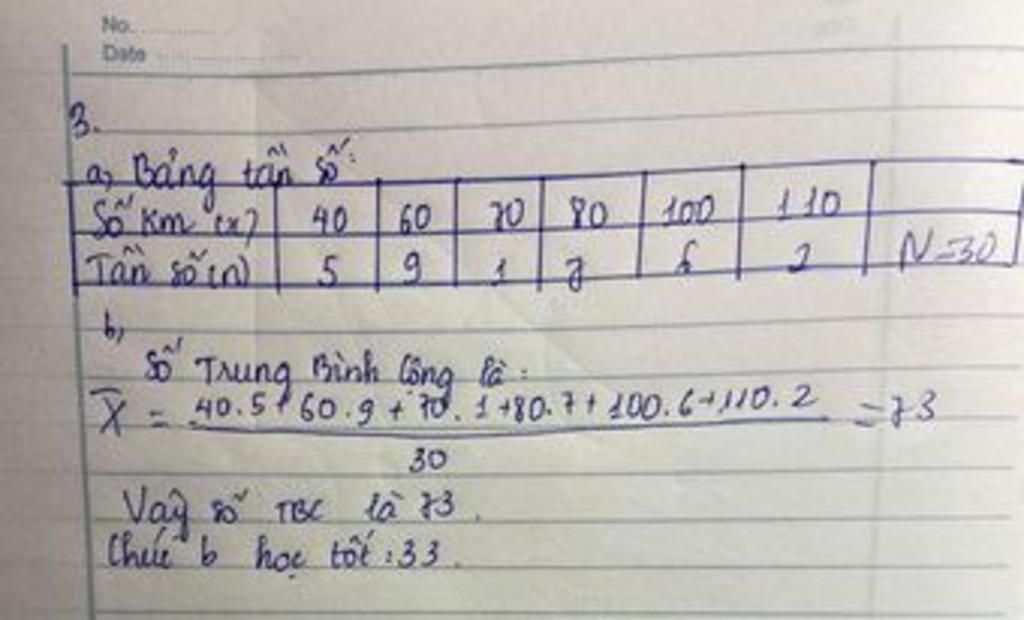 No. ............
Date ........................
3.
a, Bảng tần số:
Số km (x) 40 60 70 80 100 110
Tần số (n) 5 9 1 7 6 2 N=30
b,
Số Trung Bình Cộng là:
X̄ = 40.5+60.9+70.1+80.7+100.6+110.2 =73
30
Vậy số TBC là 73.
Chúc b học tốt :33.